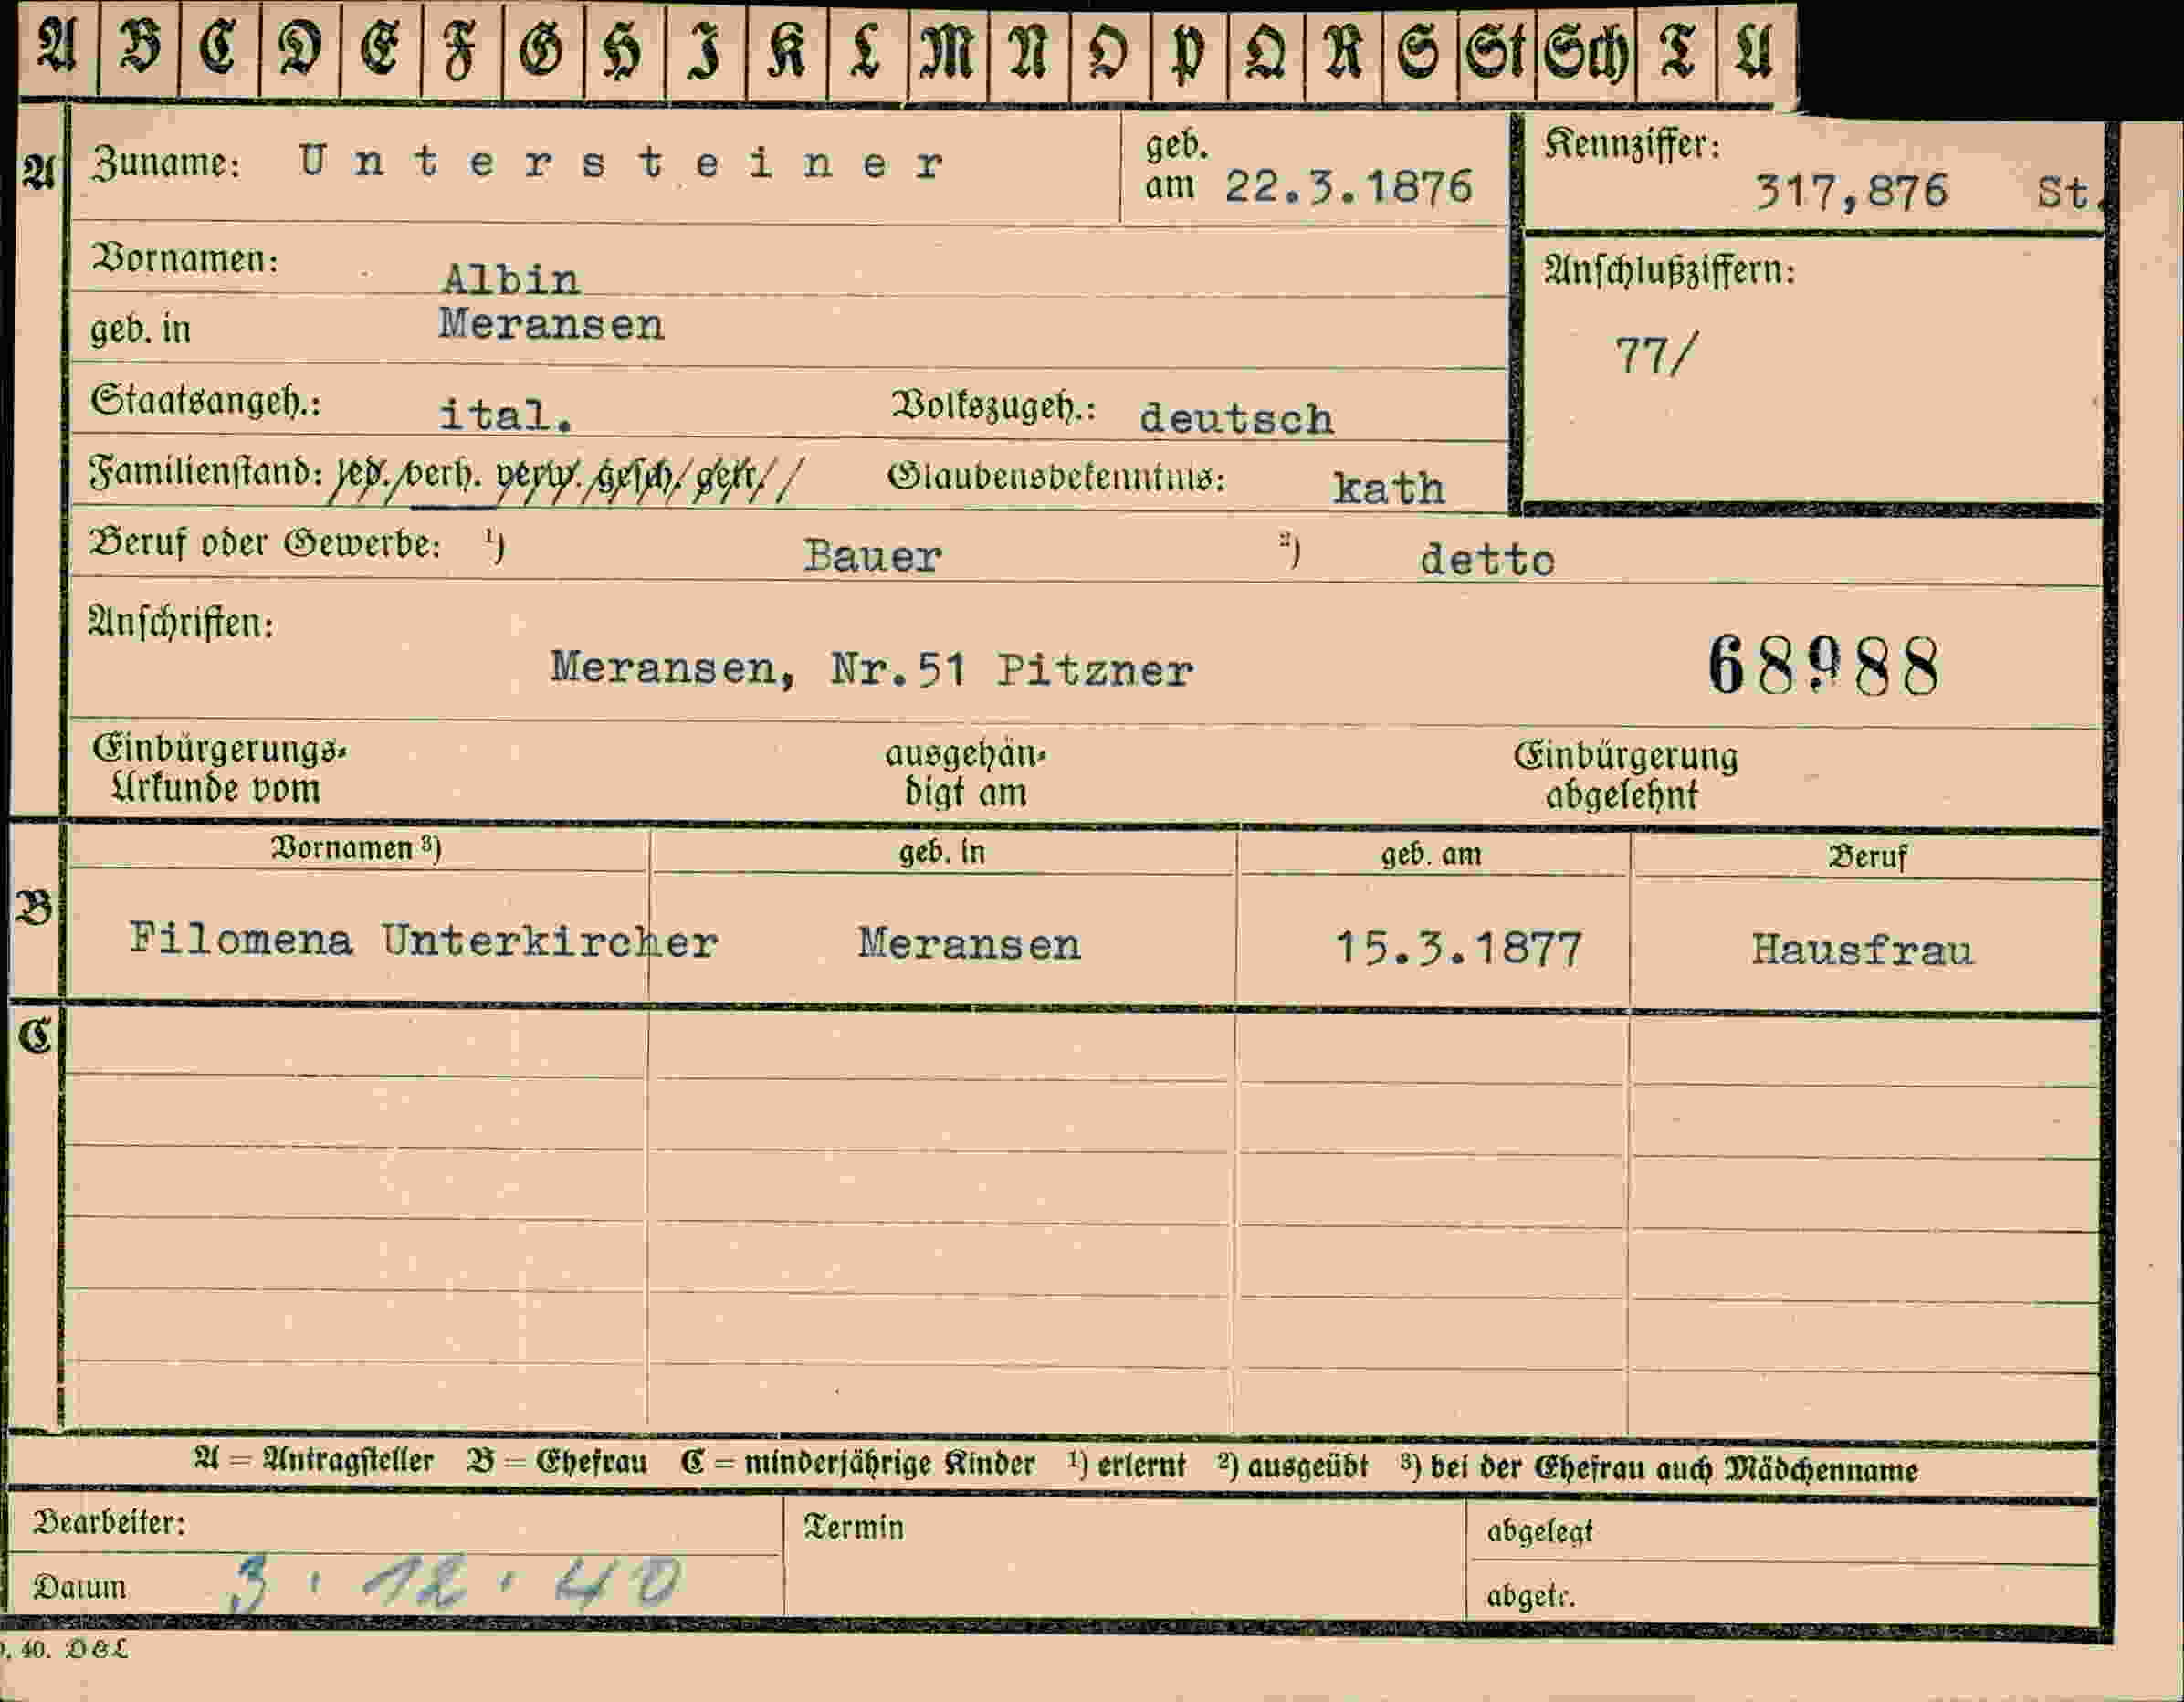 A B C D E F G H I K L M N O P Q R S St Sch T U
A Zuname: Untersteiner geb. am 22.3.1876 Kennziffer: 317,876 St.
Vornamen: Albin Anschlußziffern:
geb. in Meransen 77/
Staatsangeh.: ital. Volkszugeh.: deutsch
Familienstand: led. verh. verw. gesch. getr. Glaubensbekenntnis: kath
Beruf oder Gewerbe: 1) Bauer 2) detto
Anschriften:
Meransen, Nr.51 Pitzner 68988
Einbürgerungs- ausgehän- Einbürgerung
Urkunde vom digt am abgelehnt
Vornamen 3) geb. in geb. am Beruf
B Filomena Unterkircher Meransen 15.3.1877 Hausfrau
C
A = Antragsteller B = Ehefrau C = minderjährige Kinder 1) erlernt 2) ausgeübt 3) bei der Ehefrau auch Mädchenname
Bearbeiter: Termin abgelegt
Datum 3.12.40 abgetr.
40. D&L